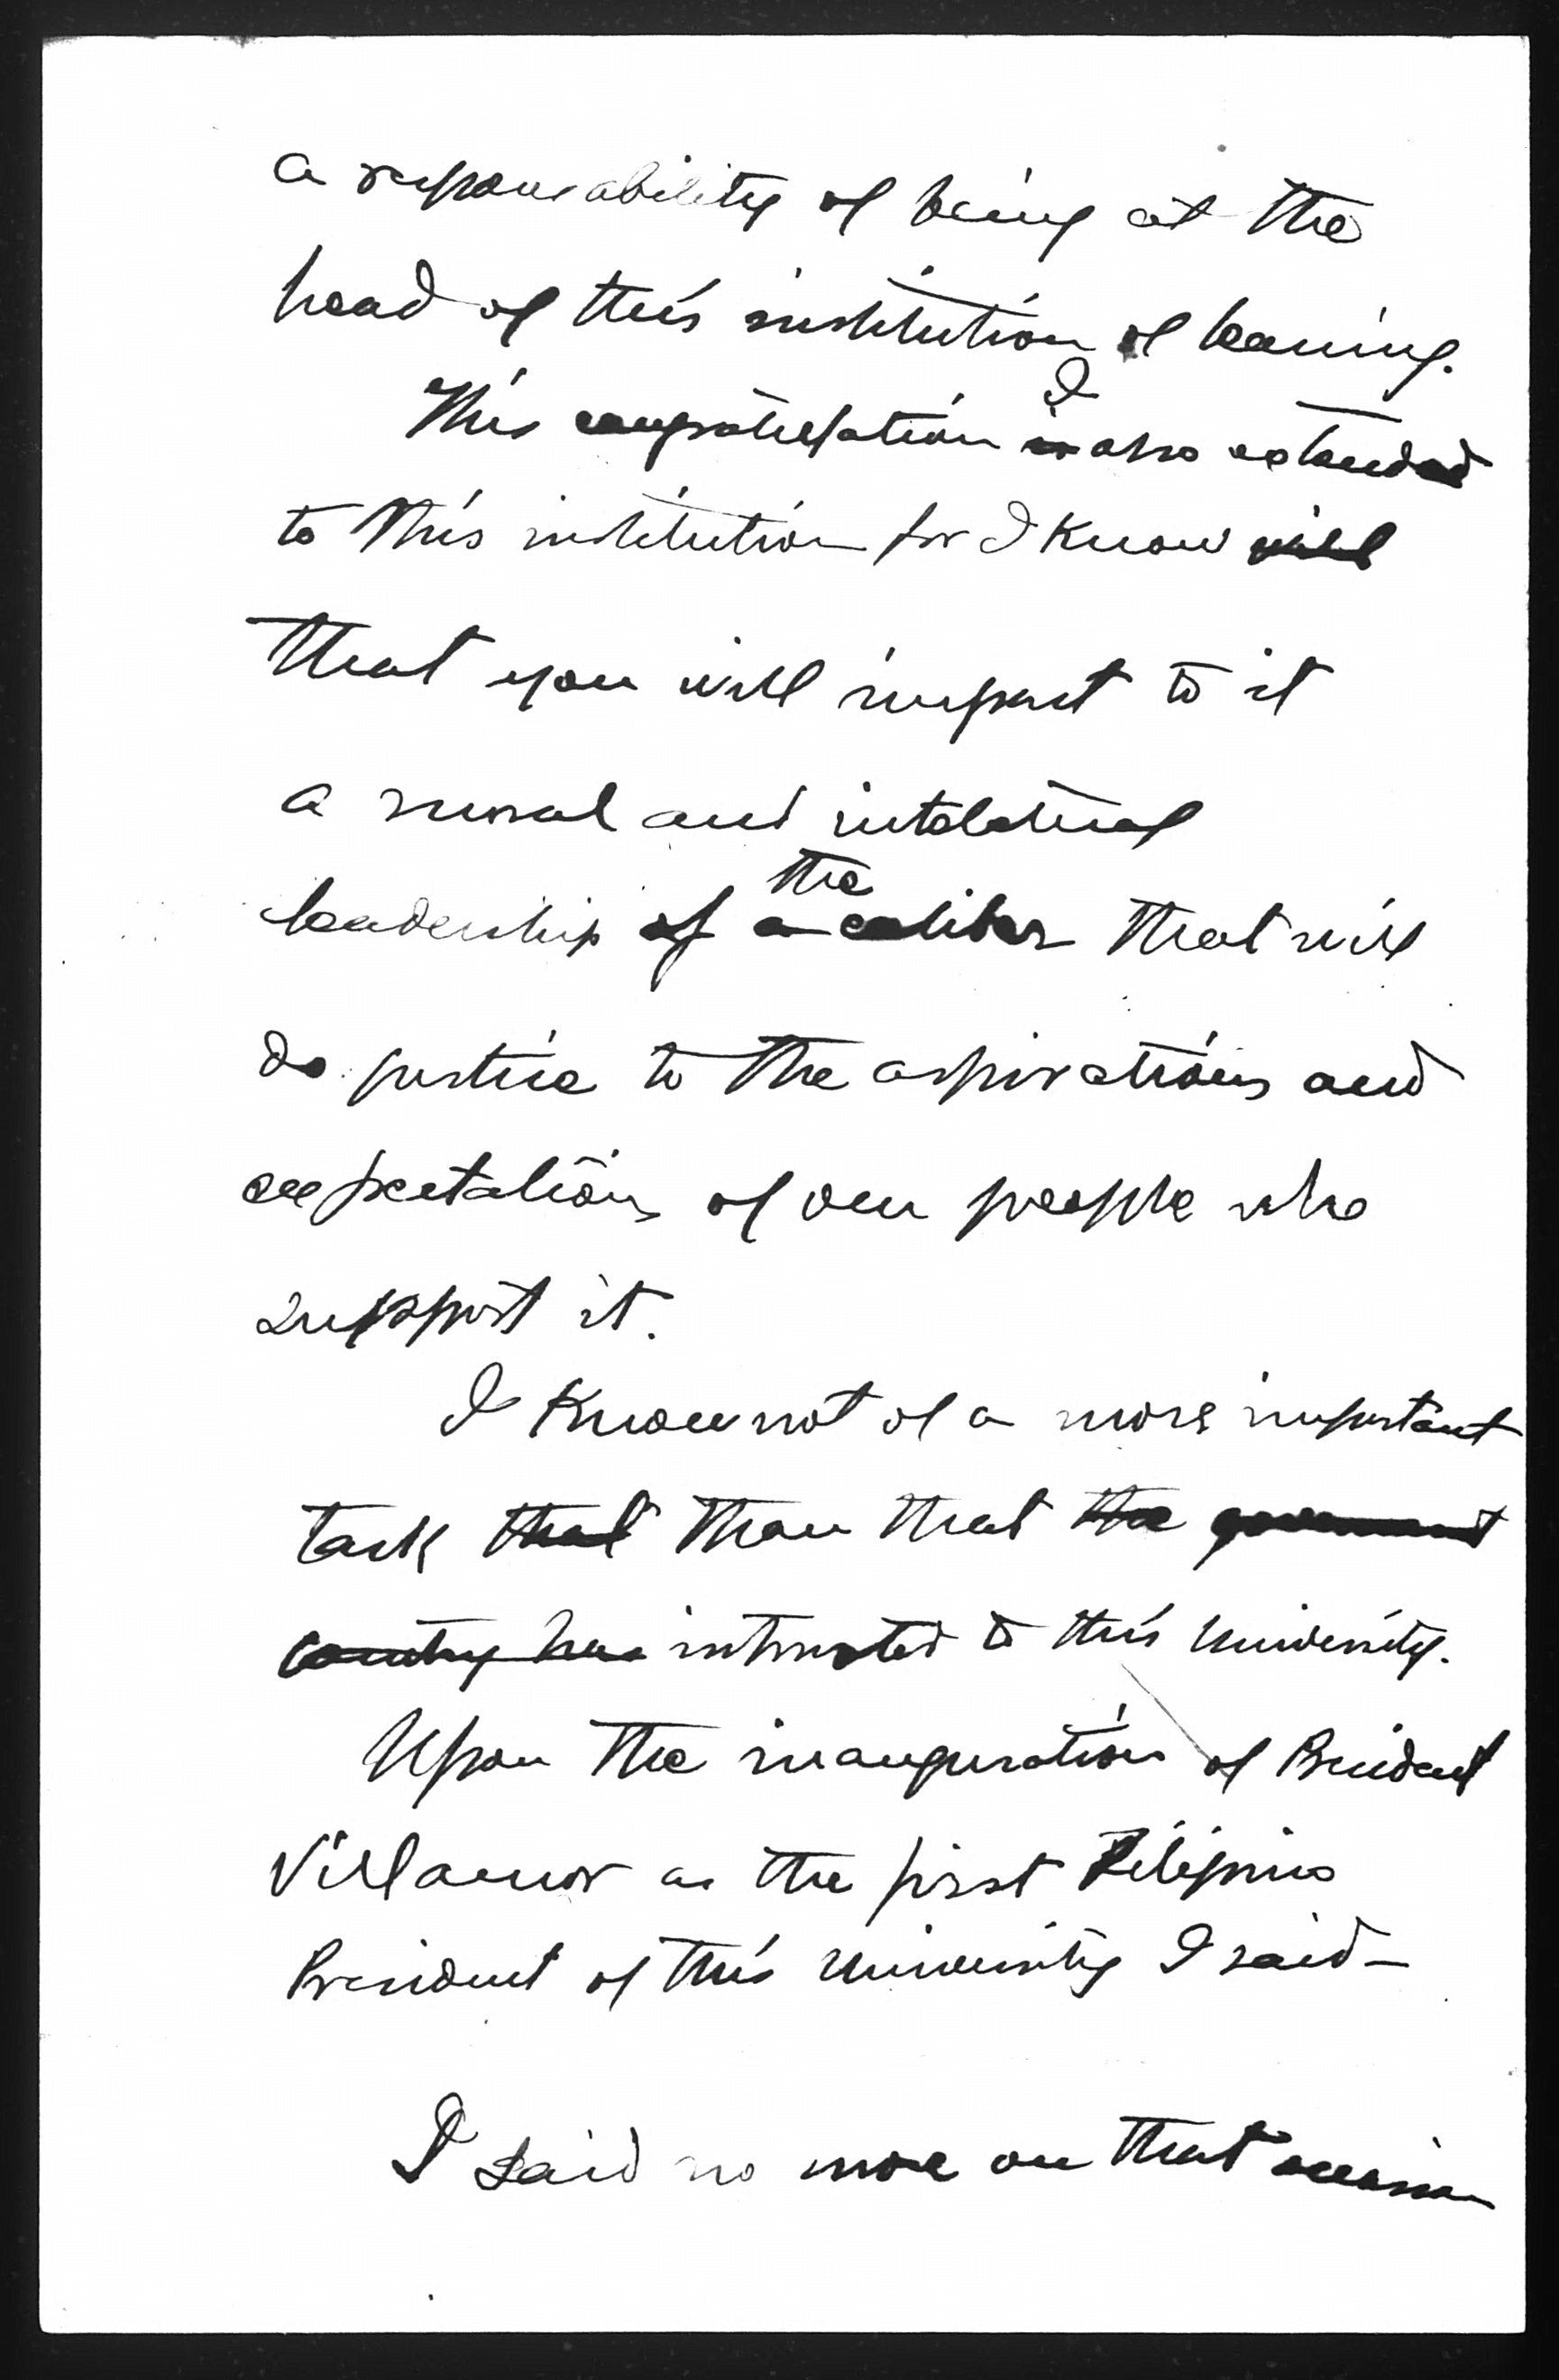 a responsability of being at the
head of this institution of learning.
This congratulation I is also extended
to this institution for I know will
that you will impart to it
a moral and intelectual
leadership of a the caliber that will
do justice to the aspirations and
expectations of our people who
support it.
I know not of a more important
task that than that the government
country has intrusted to this University.
Upon the inauguration of President
Villamor as the first Filipino
President of this University I said—
I said no more on that occasion